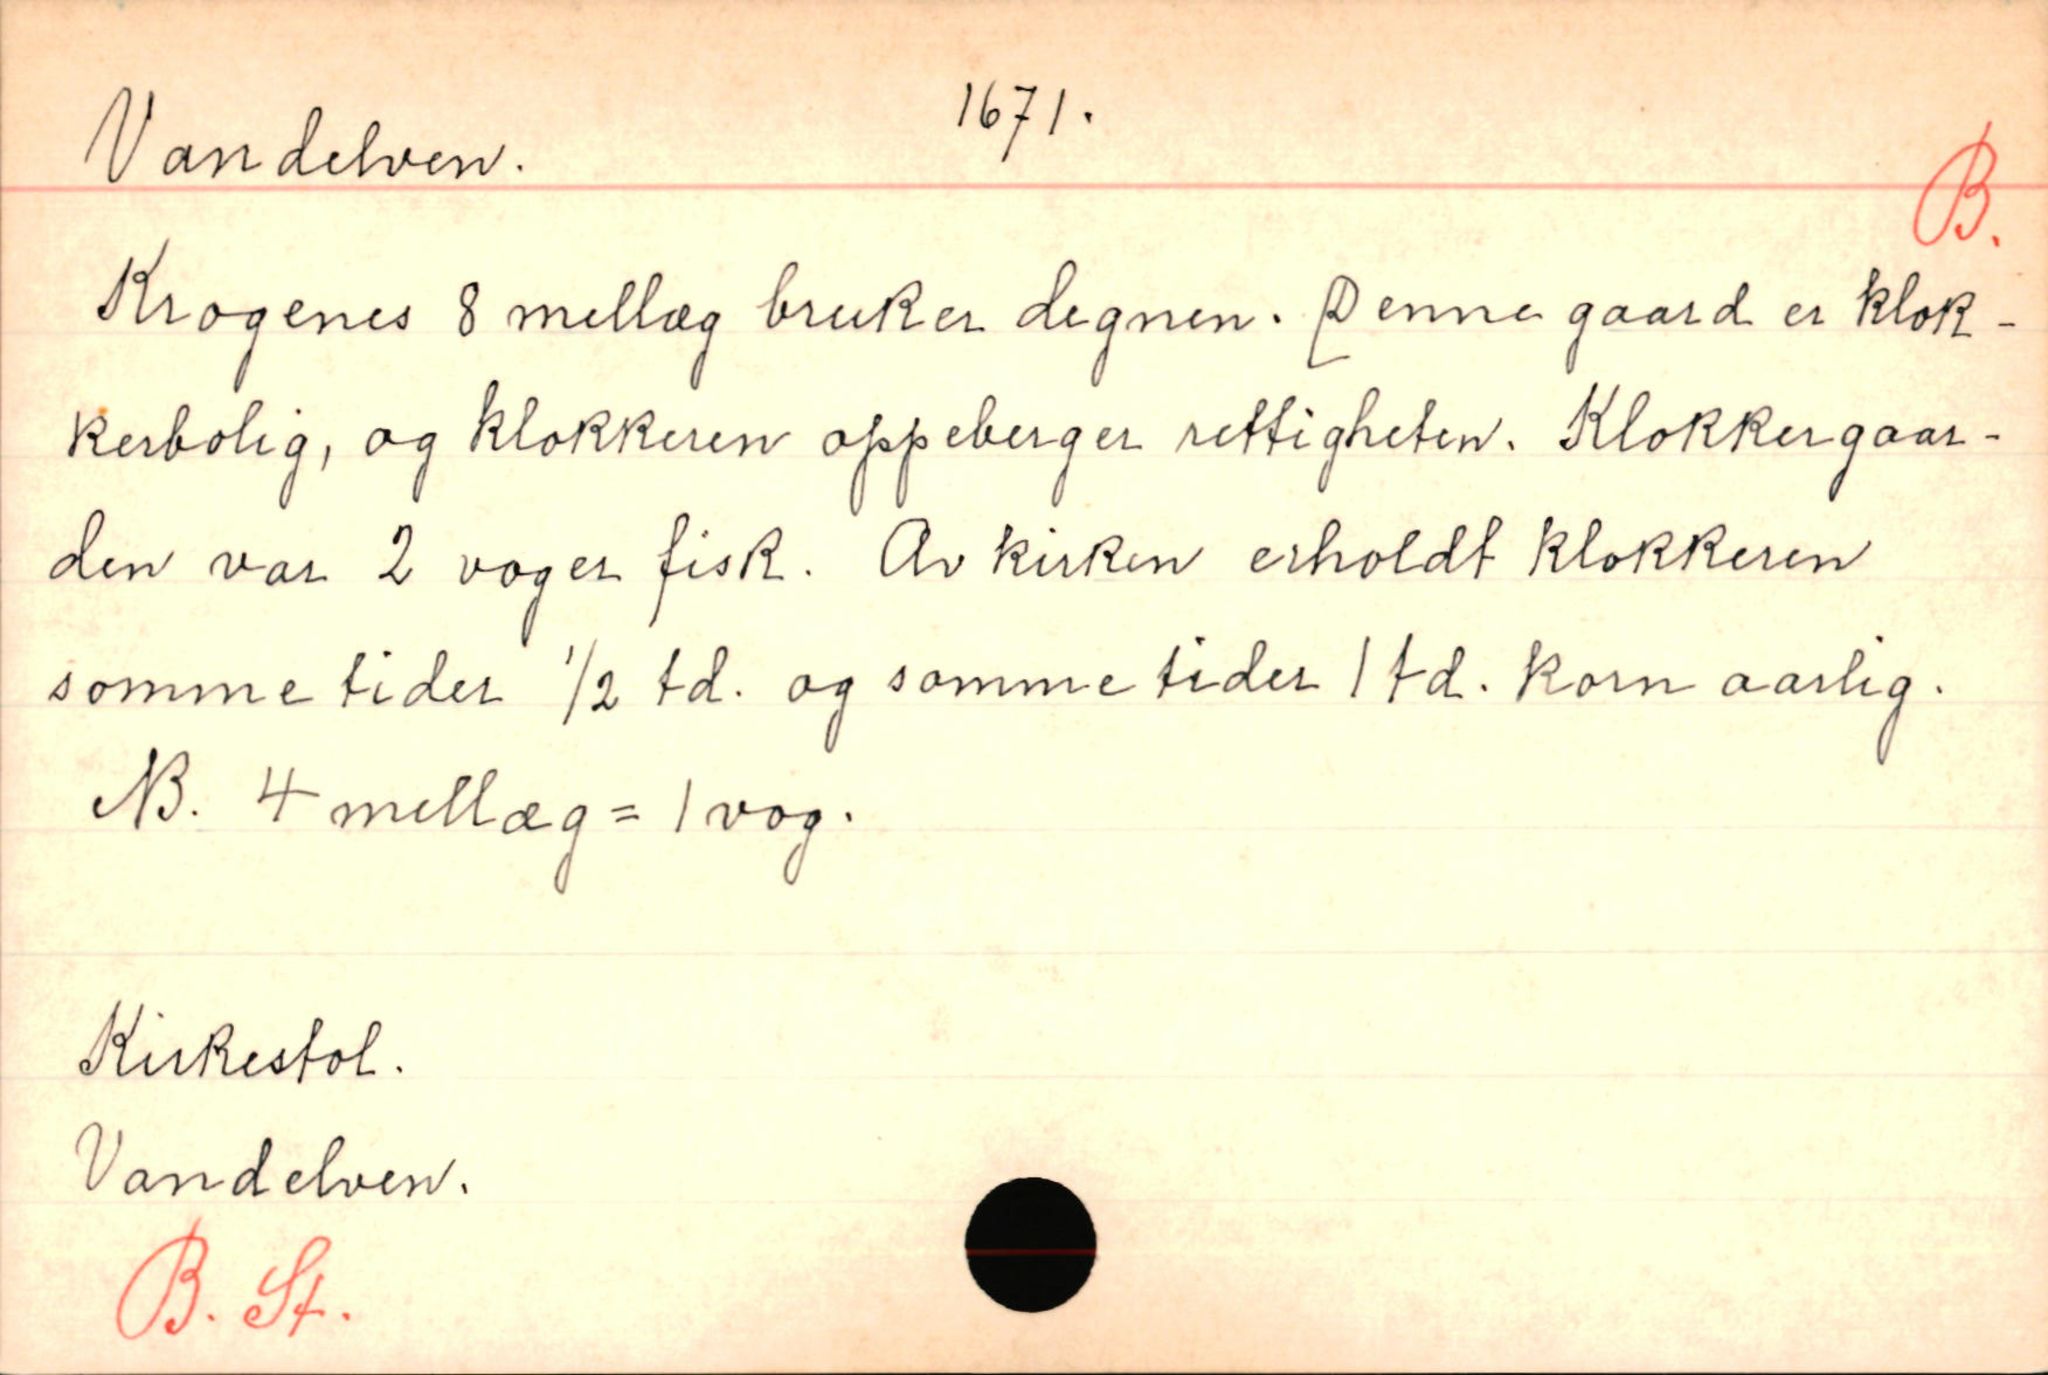 Vandelven. 1671.
B.
Krogenes 8 mellæg bruker degnen. Denne gaard er klok-
kerbolig, og klokkeren oppeberger rettigheten. Klokkergaar-
den var 2 voger fisk. Av kirken erholdt klokkeren
somme tider 1/2 td. og somme tider 1 td. korn aarlig.
NB. 4 mellæg = 1 vog.
Kirkestol.
Vandelven.
B. St.